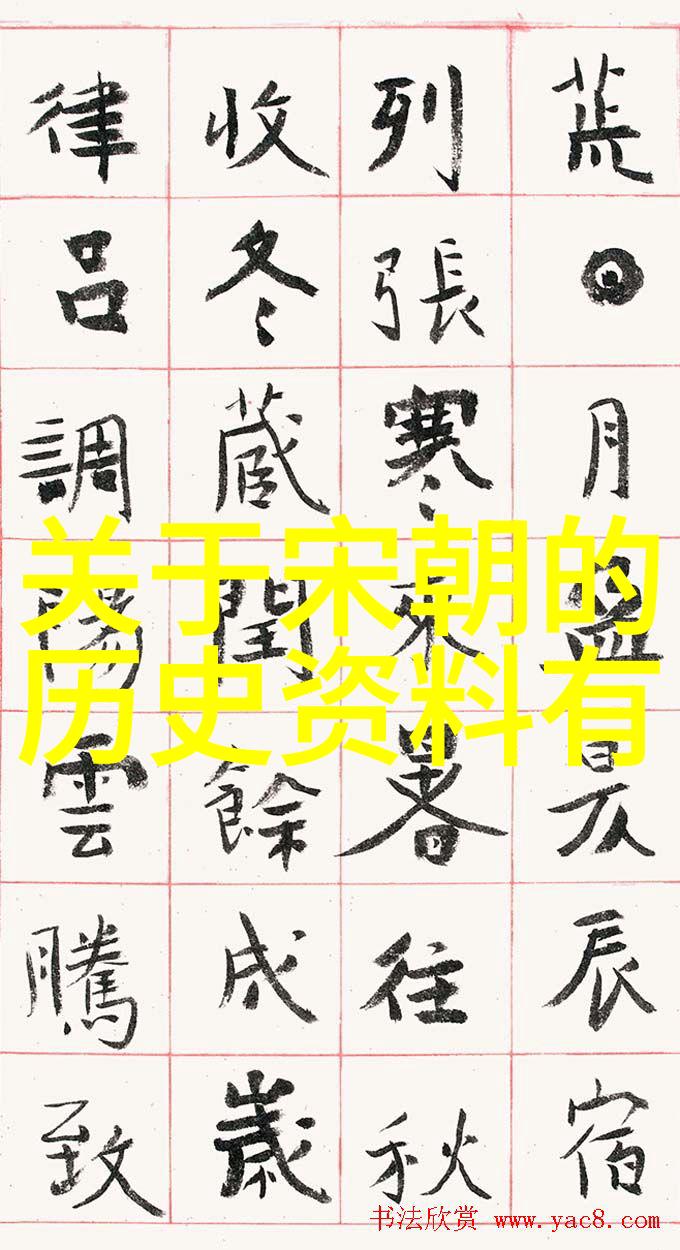 荒日月盈昃辰宿
列張寒來暑往秋
收冬藏閏餘成歲
律呂調陽雲騰致
关于宋朝的
历史资料有
书法欣赏 www.yac8.com